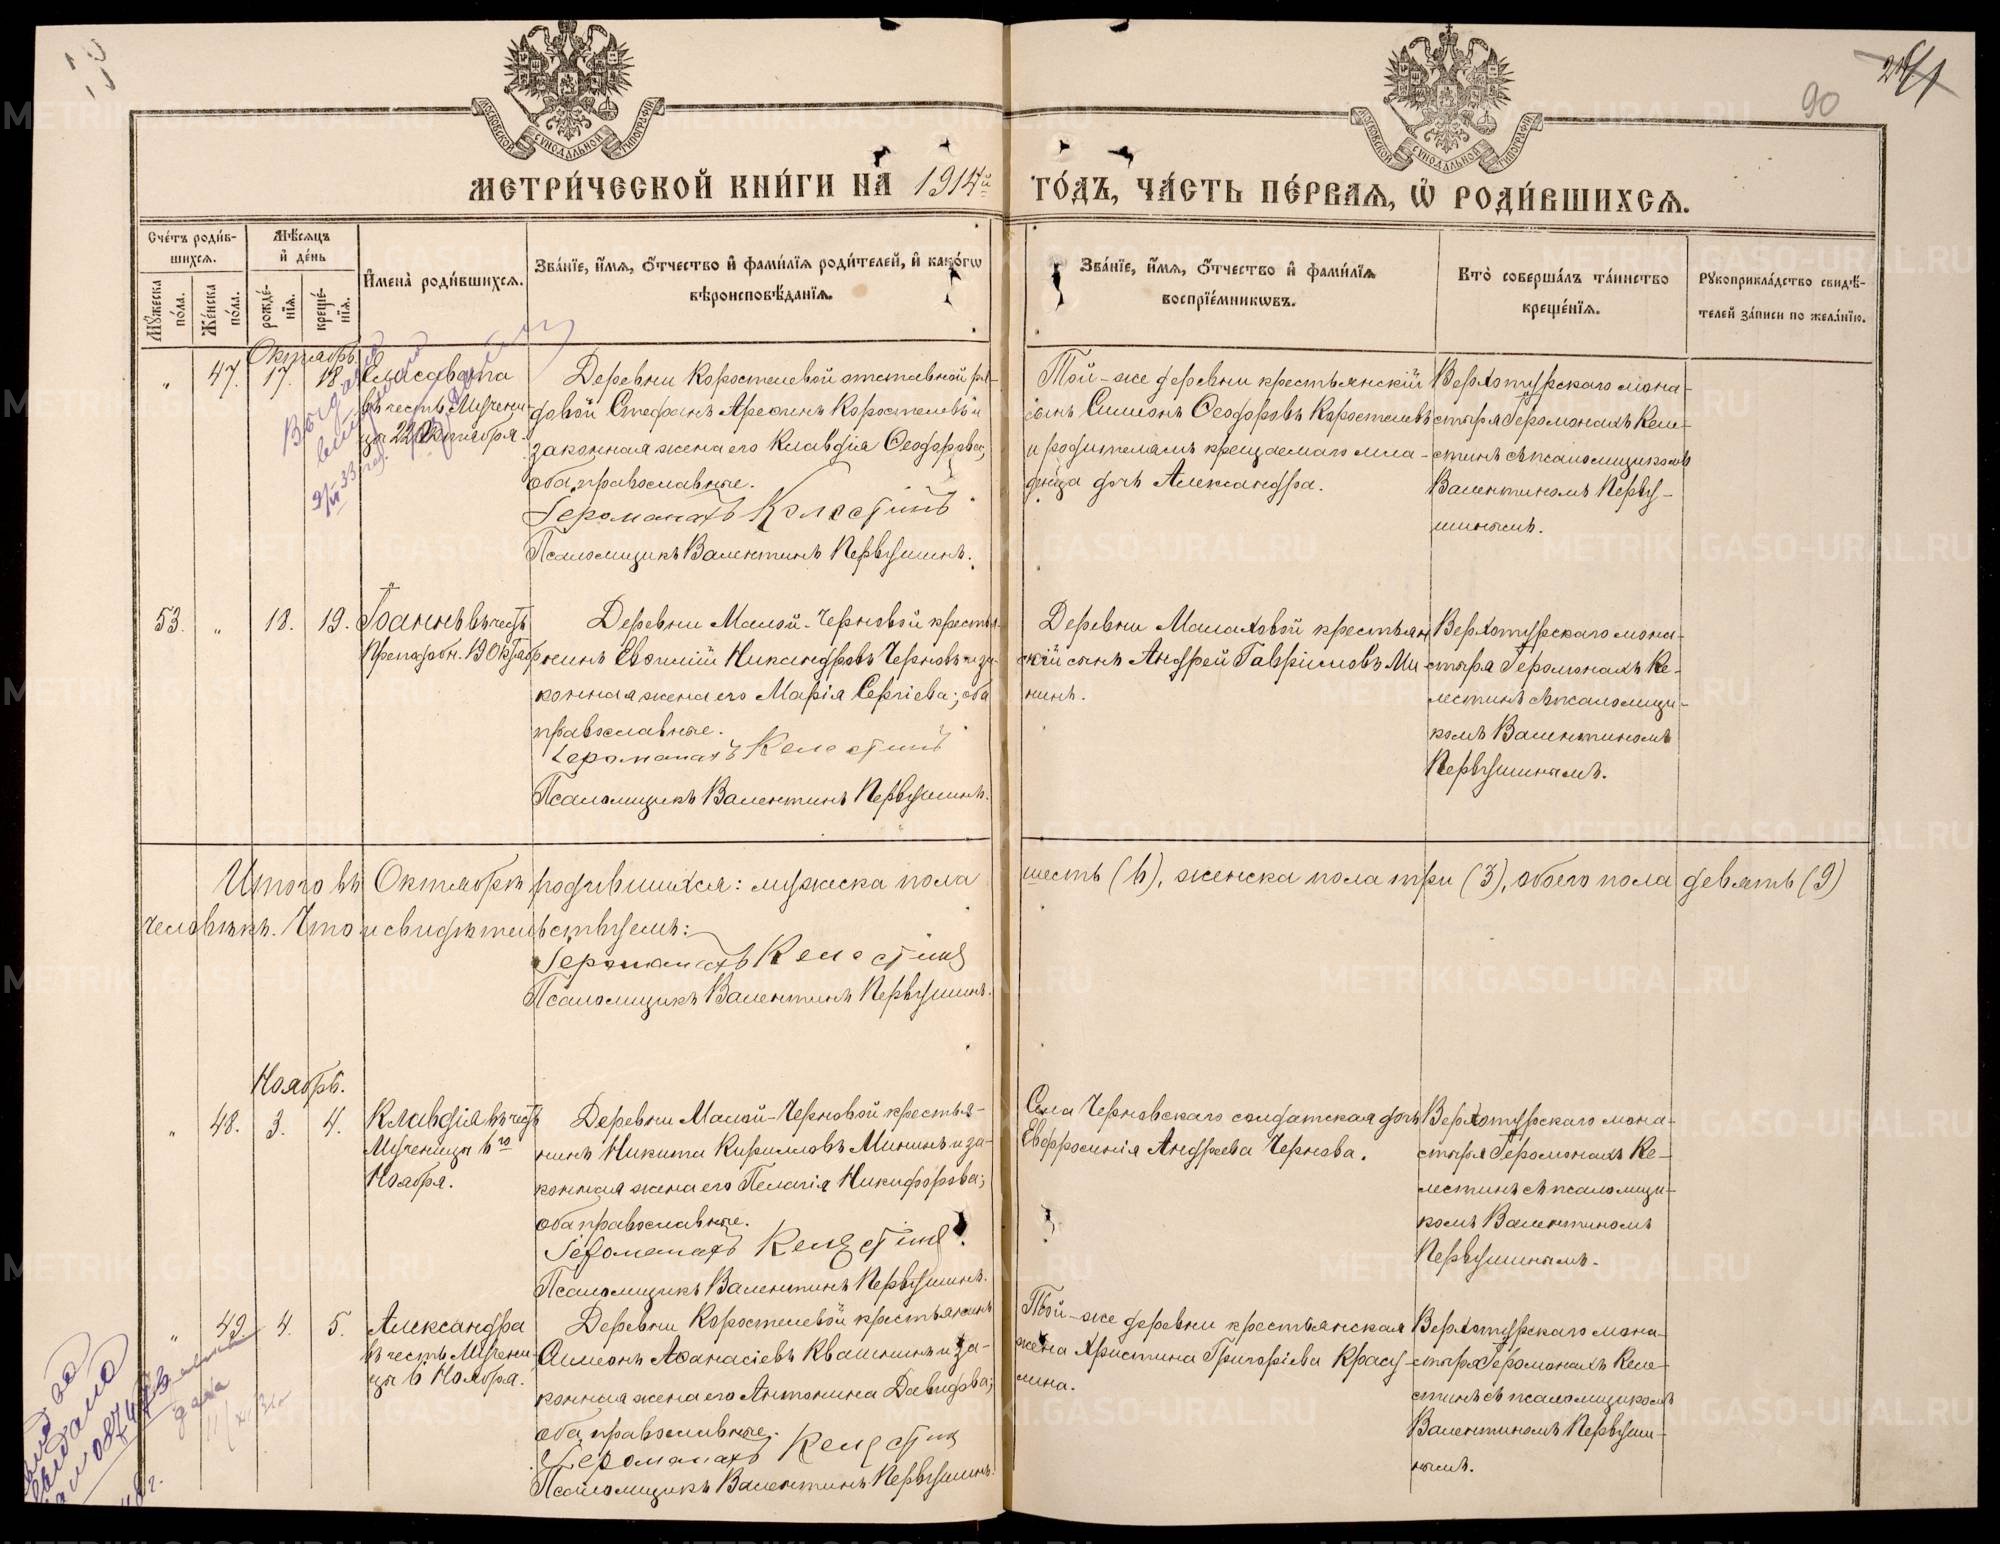 90
МОСКОВСКОЙ СѴНОДАЛЬНОЙ ТИПОГРАФІИ
МОСКОВСКОЙ СѴНОДАЛЬНОЙ ТИПОГРАФІИ
МЕТРИ́ЧЕСКОЙ КНИ́ГИ НА 1914й ГО́ДЪ, ЧА́СТЬ ПЕ́РВАѦ, Ѡ РОДИ́ВШИХСѦ.
Сче́тъ роди́в-
шихсѧ.
Мꙋ́жеска по́ла.
Же́нска по́ла.
Мѣ́сѧцъ
и҆ де́нь
рожде́-
нїѧ.
креще́-
нїѧ.
И҆мена̀ роди́вшихсѧ.
Зва́нїе, и҆́мѧ, ѻ҆́тчество и҆ фами́лїѧ роди́телей, и҆ како́гѡ
вѣроисповѣ́данїѧ.
Зва́нїе, и҆́мѧ, ѻ҆́тчество и҆ фами́лїѧ
воспрїе́мникѡвъ.
Кто̀ соверша́лъ та́инство
креще́нїѧ.
Рꙋкоприкла́дство свидѣ́-
телей за́писи по жела́нїю.
Октябрь.
" 47. 17. 18.
Елисавета
въ честь Мучени-
цы 22 Октября.
Деревни Коростелевой отставной ря-
довой Стефанъ Арефинъ Коростелевъ и
законная жена его Клавдія Ѳеодорова;
оба православные.
Іеромонахъ Келестинъ
Псаломщикъ Валентинъ Первушинъ.
Той-же деревни крестьянскій
сынъ Симеонъ Ѳеодоровъ Коростелевъ
и родителямъ крещаемаго мла-
денца дочь Александра.
Верхотурскаго мона-
стыря Іеромонахъ Келе-
стинъ съ псаломщикомъ
Валентиномъ Перву-
шинымъ.
53. " 18. 19.
Іоаннъ въ честь
Преподобн. 19 Октябр
Деревни Малой-Черновой крестья-
нинъ Евѳимій Никандровъ Черновъ и за-
конная жена его Марія Сергіева; оба
православные.
Іеромонахъ Келестинъ
Псаломщикъ Валентинъ Первушинъ.
Деревни Малаховой крестьян-
скій сынъ Андрей Гавріиловъ Ми-
нинъ.
Верхотурскаго мона-
стыря Іеромонахъ Ке-
лестинъ съ псаломщи-
комъ Валентиномъ
Первушинымъ.
Итого въ Октябрѣ родившихся: мужеска пола шесть (6), женска пола три (3), обоего пола девять (9)
человѣкъ. Что и свидѣтельствуемъ:
Іеромонахъ Келестинъ
Псаломщикъ Валентинъ Первушинъ.
Ноябрь.
" 48. 3. 4.
Клавдія въ честь
Мученицы 6го
Ноября.
Деревни Малой-Черновой крестья-
нинъ Никита Кирилловъ Мининъ и за-
конная жена его Пелагія Никифорова;
оба православные.
Іеромонахъ Келестинъ.
Псаломщикъ Валентинъ Первушинъ.
Села Черновскаго солдатская дочь
Евфросинія Андреева Чернова.
Верхотурскаго мона-
стыря Іеромонахъ Ке-
лестинъ съ псаломщи-
комъ Валентиномъ
Первушинымъ.
" 49. 4. 5.
Александра
въ честь Мучени-
цы 6 Ноября.
Деревни Коростелевой крестьянинъ
Симеонъ Аѳанасіевъ Квашнинъ и за-
конная жена его Антонина Давидова;
оба православные.
Іеромонахъ Келестинъ
Псаломщикъ Валентинъ Первушинъ.
Той-же деревни крестьянская
жена Христина Григоріева Красу-
лина.
Верхотурскаго мона-
стыря Іеромонахъ Келе-
стинъ съ псаломщикомъ
Валентиномъ Первуши-
нымъ.